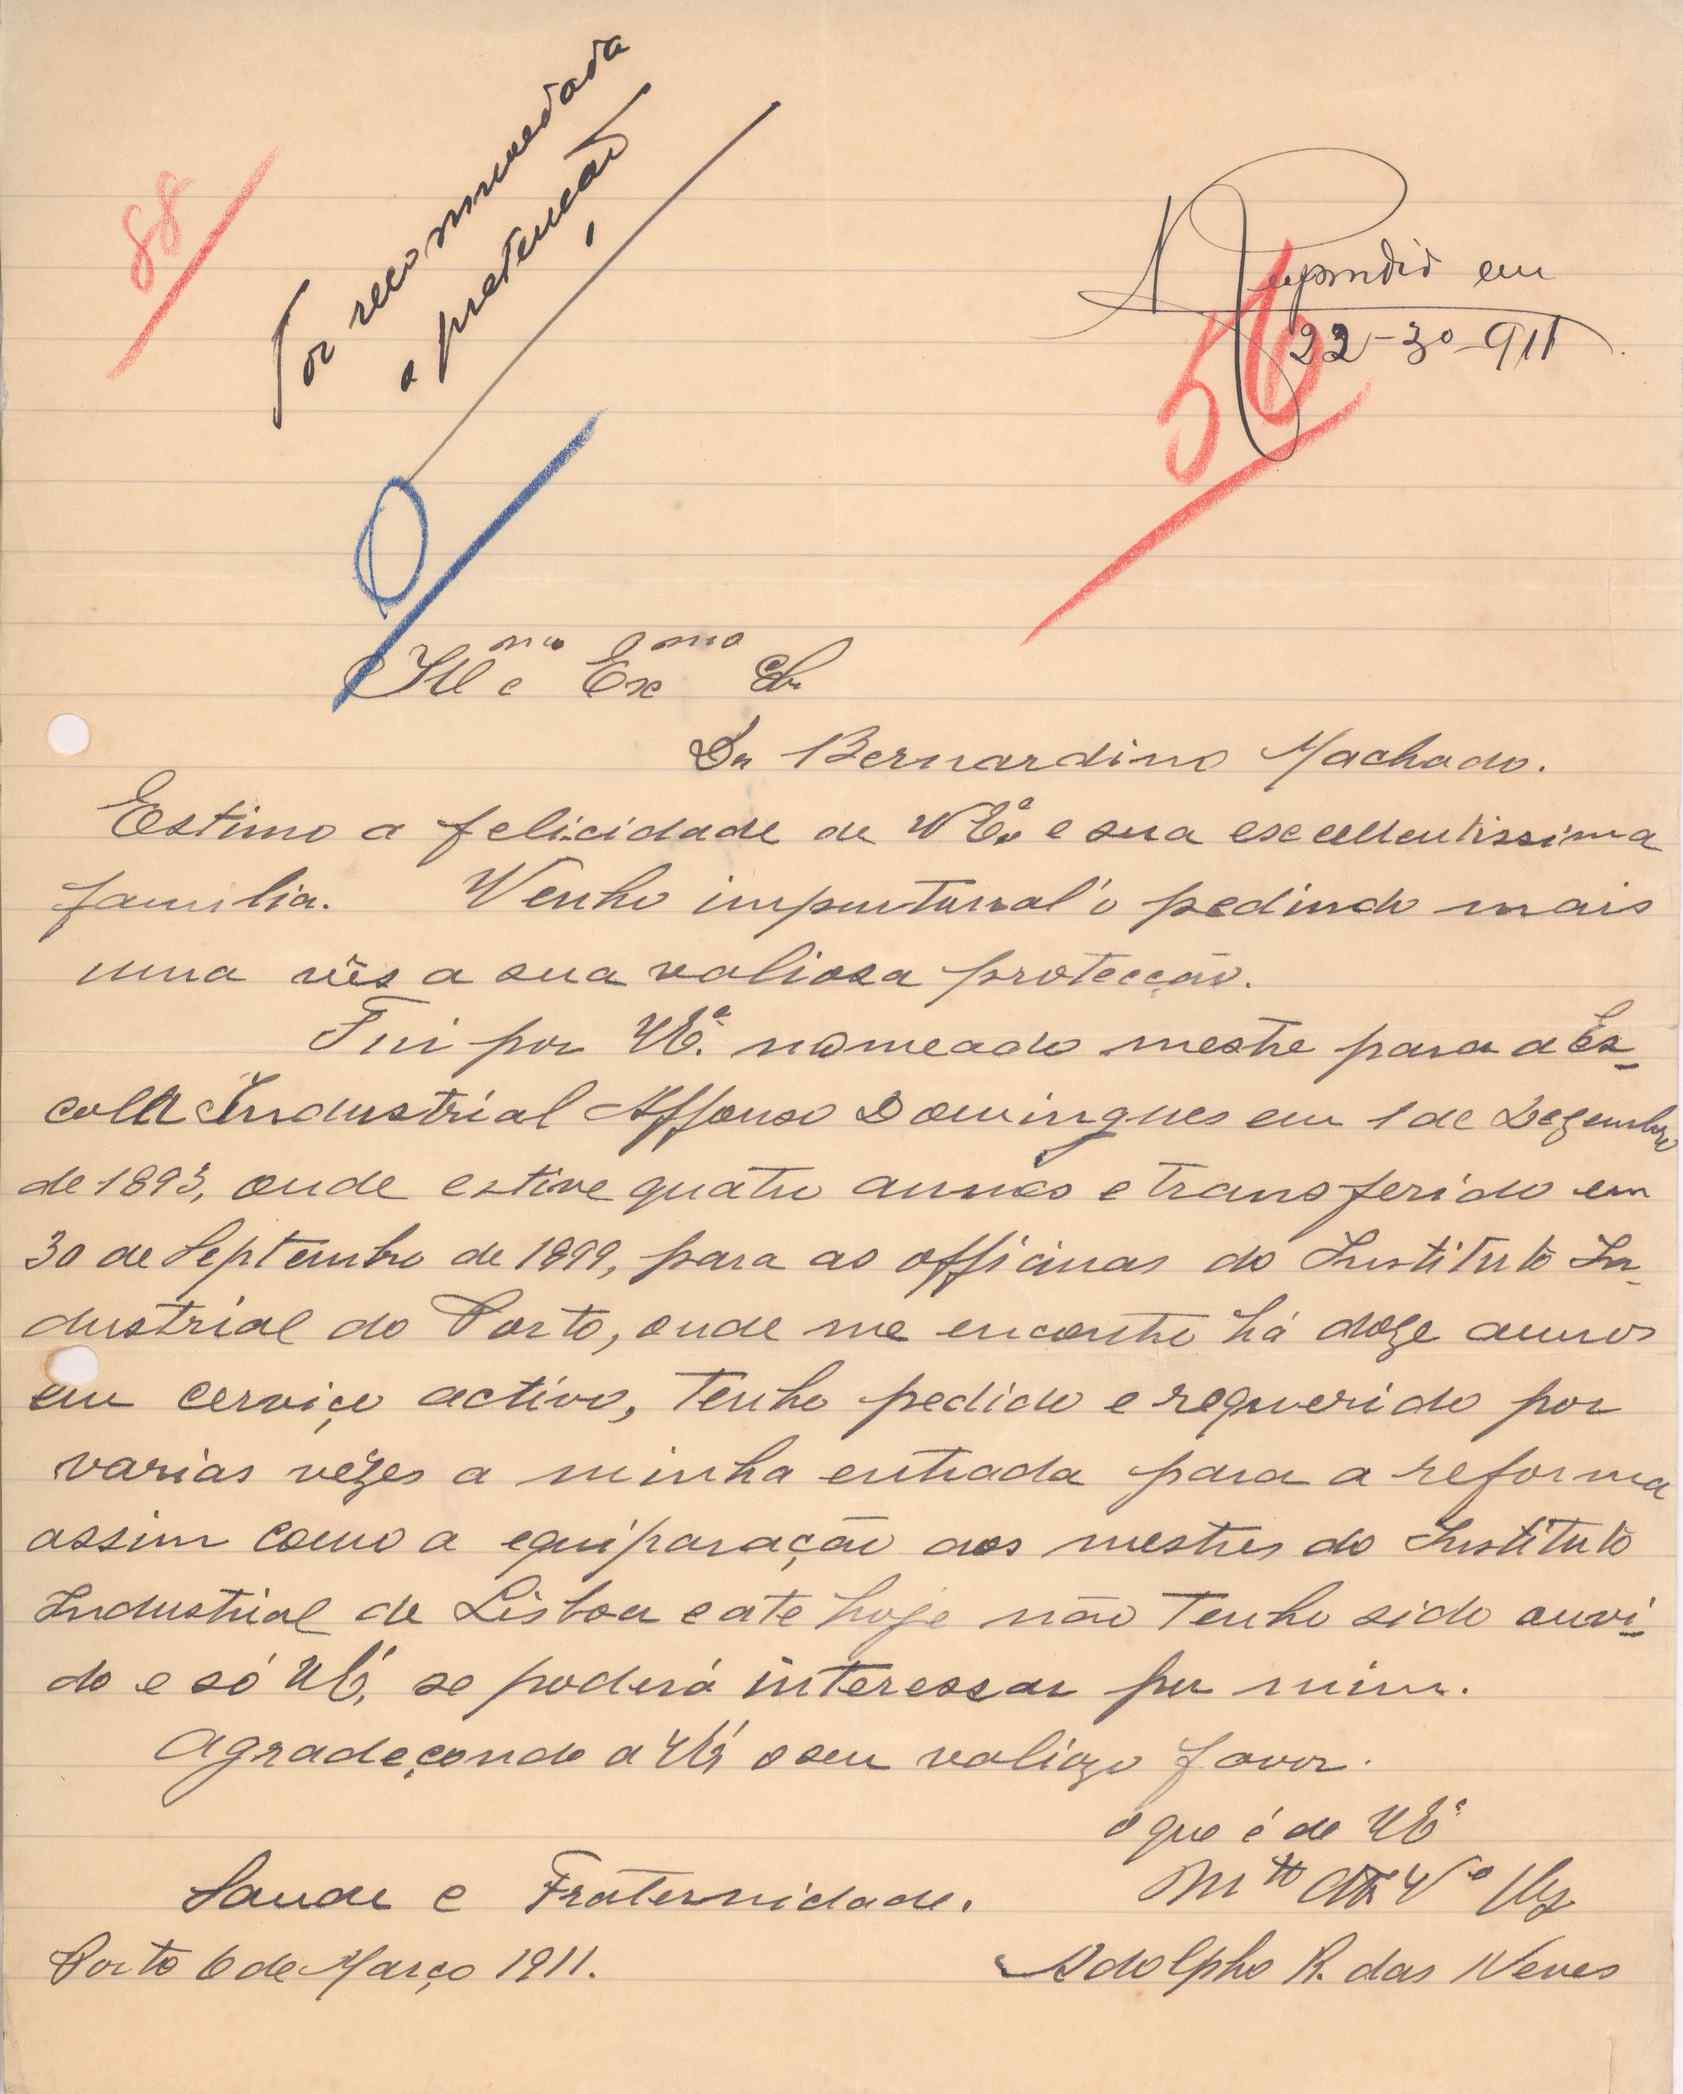 88
Foi recommendada
a pretenção
Respondido em
22-3º-911
56
Illmo e Exmo Sr.
Dr Bernardino Machado.
Estimo a felicidade de V Exª e sua excellentissima
familia. Venho importunal'o pedindo mais
uma vês a sua valiosa protecção.
Fui por V Eª. nomeado mestre para a Es-
cola Industrial Affonso Domingues em 1 de Dezembro
de 1893, onde estive quatro annos e transferido em
30 de Septembro de 1899, para as officinas do Instituto In-
dustrial do Porto, onde me encontro há doze annos
em cerviço activo, tenho pedido e requerido por
varias vêzes a minha entrada para a reforma
assim como a equiparação aos mestres do Instituto
Industrial de Lisboa e ate hoje não tenho sido ouvi-
do e só V Eª, se poderá interessar por mim.
Agradeçendo a V Eª o seu valiozo favor.
o que é de V Eª
Mto Attº Vor
Saude e Fraternidade.
Porto 6 de Março 1911.
Adolpho R. das Neves